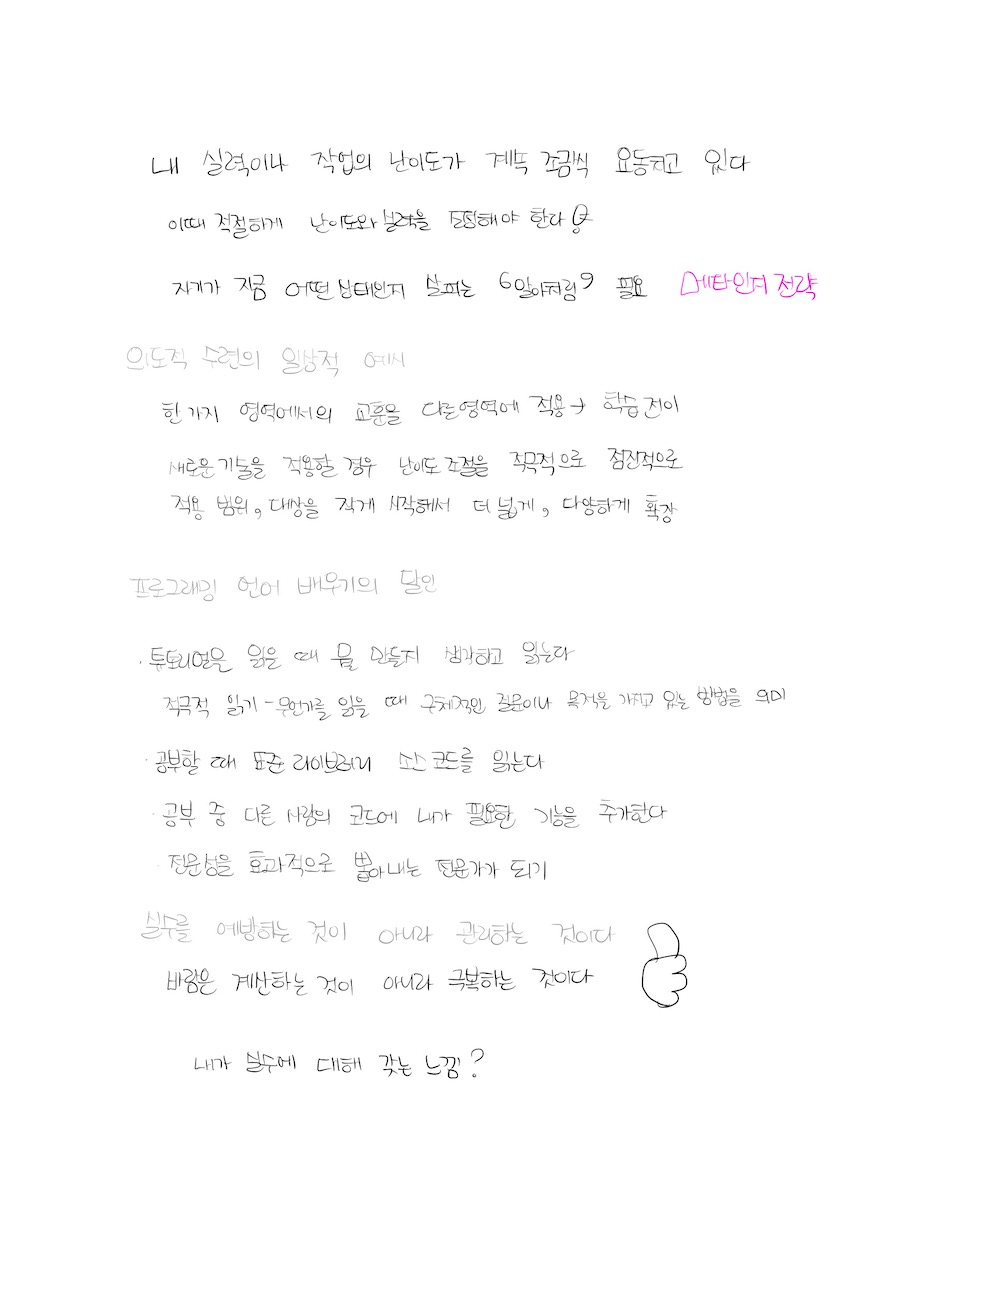 내 실력이나 작업의 난이도가 계속 조금씩 요동치고 있다
이때 적절하게 난이도와 실력을 조정해야 한다
자기가 지금 어떤 상태인지 살피는 '알아차림' 필요 메타인지 전략
의도적 수련의 일상적 예시
한가지 영역에서의 교훈을 다른영역에 적용 → 학습 전이
새로운기술을 적용할 경우 난이도 조절을 적극적으로 점진적으로
적용 범위, 대상을 작게 시작해서 더 넓게, 다양하게 확장
프로그래밍 언어 배우기의 달인
· 튜토리얼을 읽을 때 뭘 만들지 생각하고 읽는다
적극적 읽기 - 무언가를 읽을 때 구체적인 질문이나 목적을 가지고 있는 방법을 의미
· 공부할 때 표준 라이브러리 소스코드를 읽는다
· 공부 중 다른 사람의 코드에 내가 필요한 기능을 추가한다
· 전문성을 효과적으로 뽑아내는 전문가가 되기
실수를 예방하는 것이 아니라 관리하는 것이다
바람은 계산하는 것이 아니라 극복하는 것이다
내가 실수에 대해 갖는 느낌?